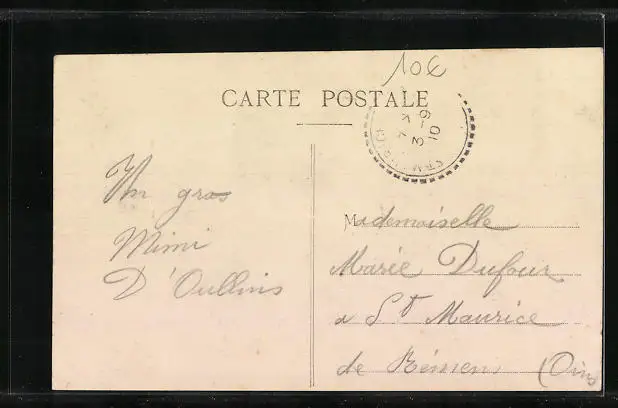 10€
CARTE POSTALE
3-9
10
Un gros
Mimi
D'Oullins
Mademoiselle
Marie Dufour
a St Maurice
de Rémens (Ain)